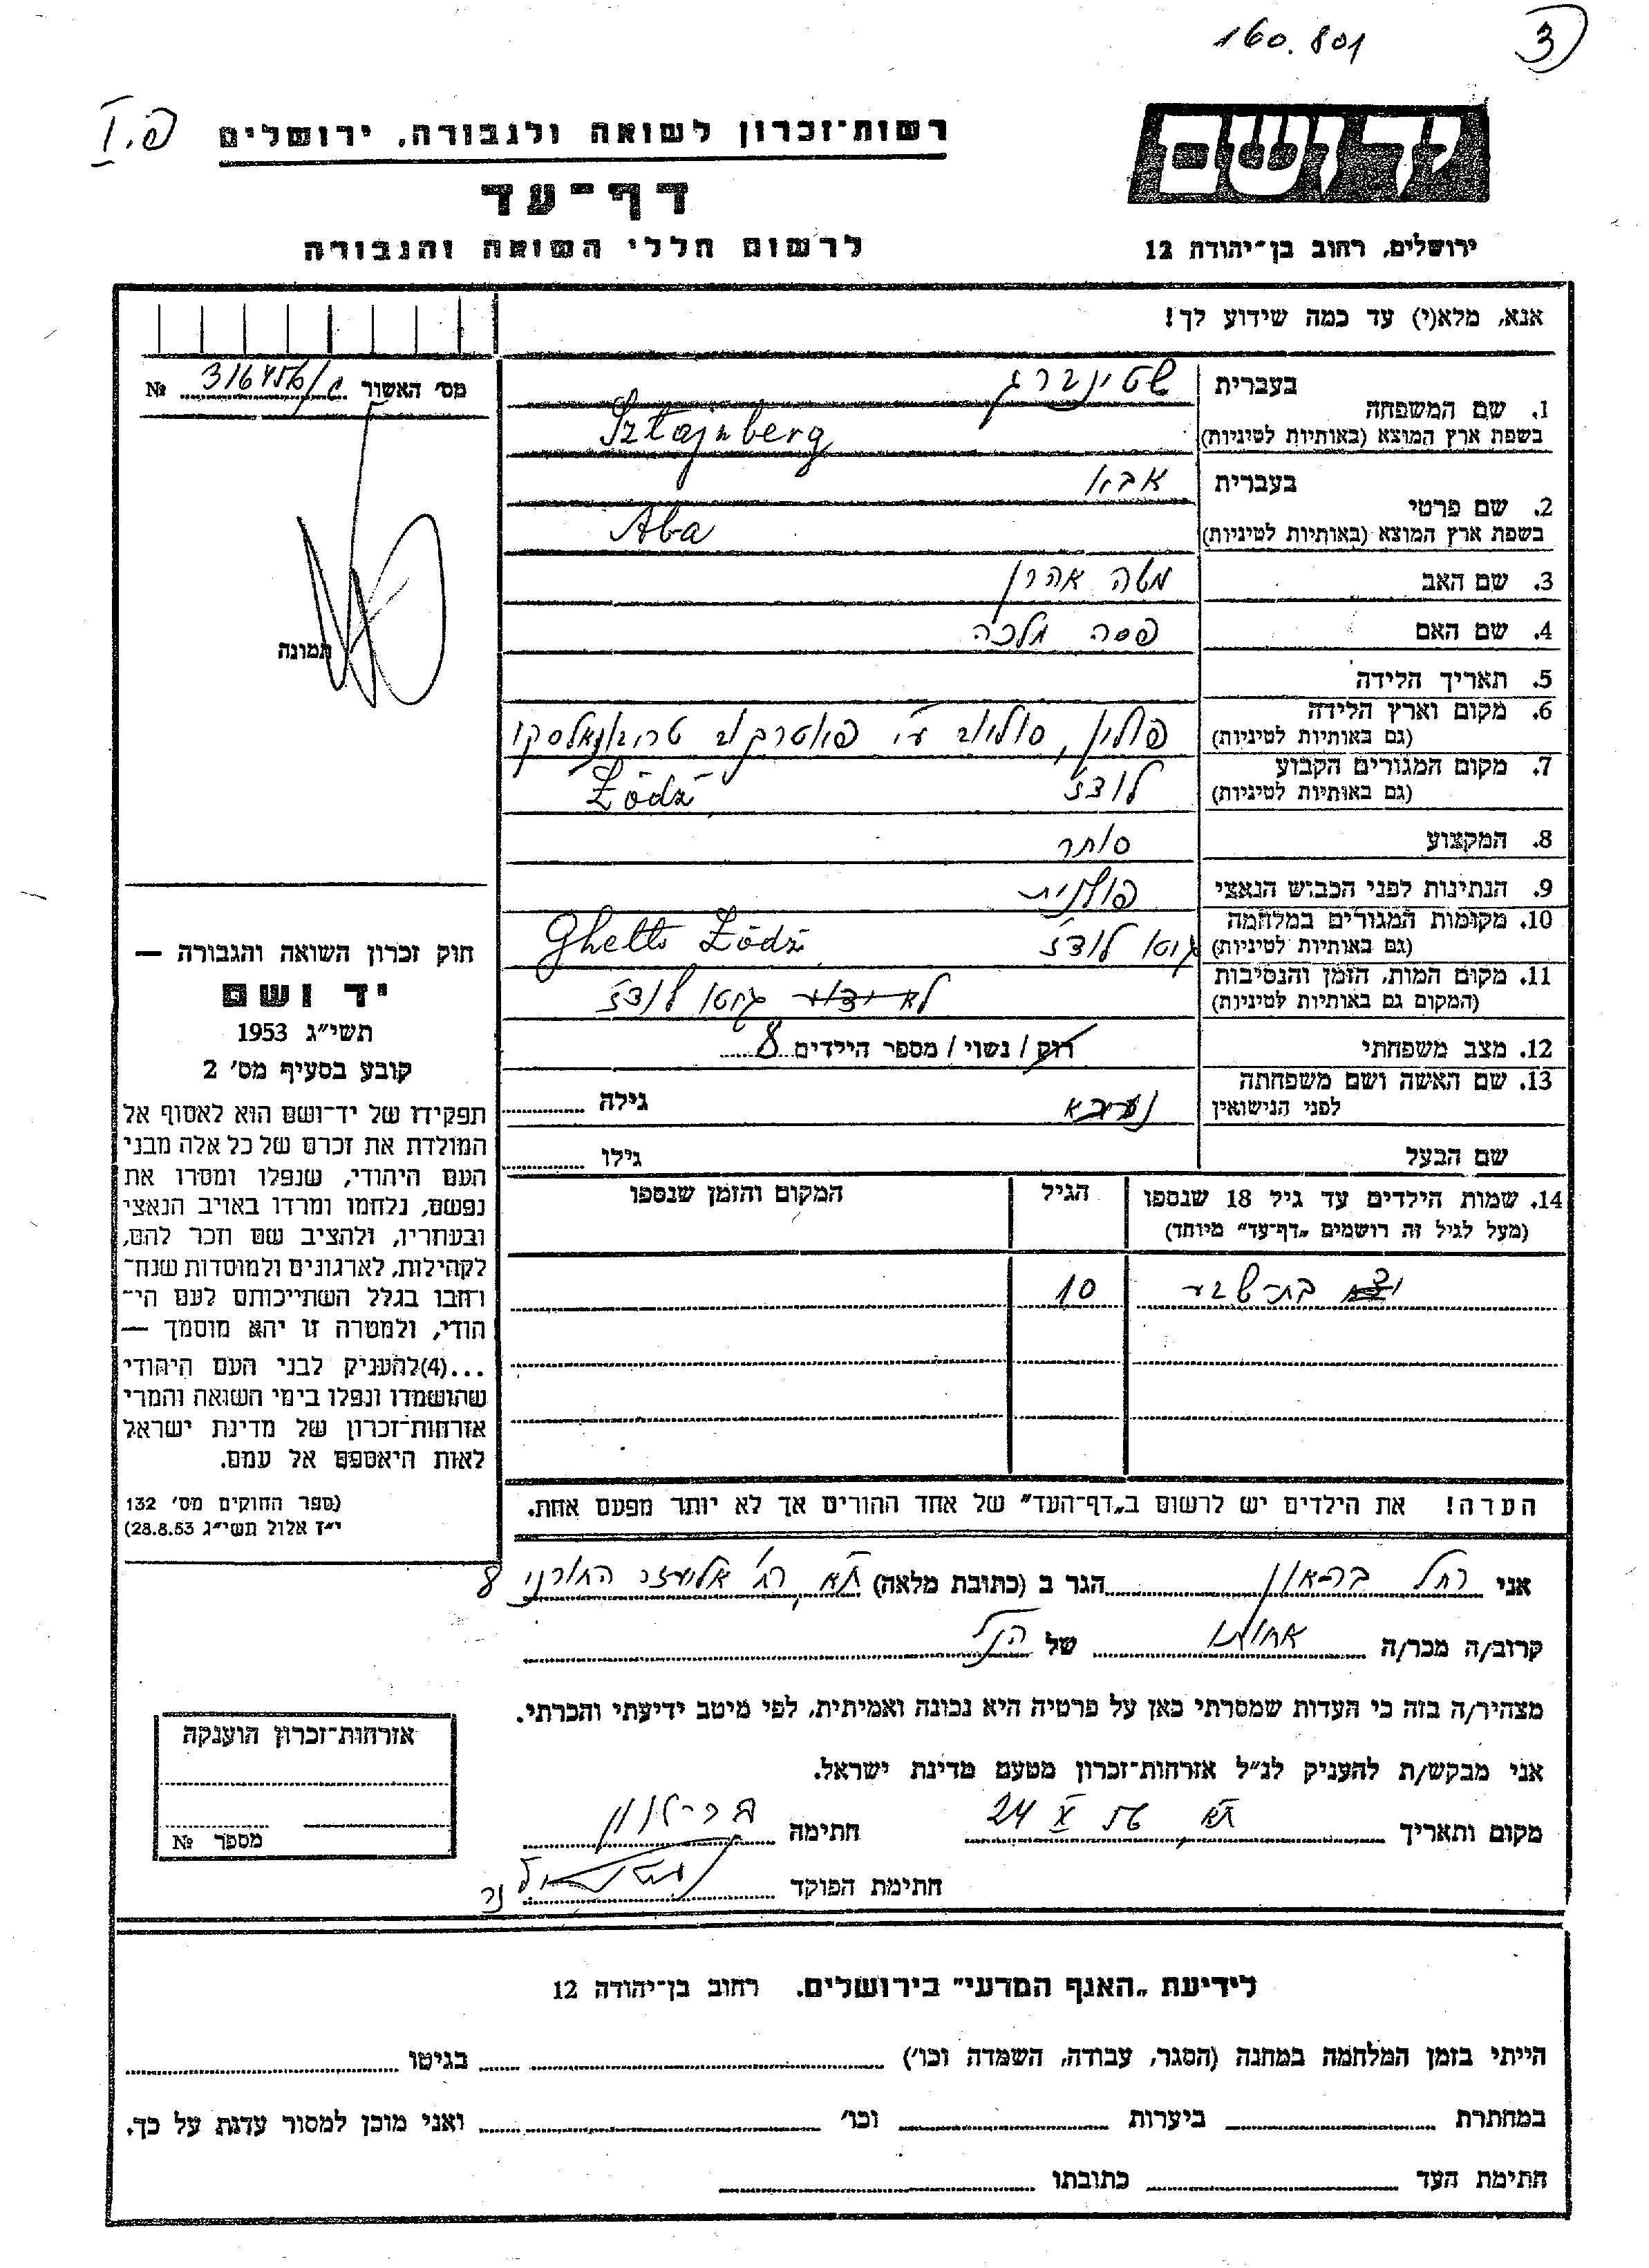 160.801
3
פ.I
רשות־זכרון לשואה ולגבורה, ירושלים
יד ושם
דף־עד
לרשום חללי השואה והגבורה
ירושלים, רחוב בן־יהודה 12
אנא, מלא(י) עד כמה שידוע לך!
מס' האשור 316456/ № 
1. שם המשפחה
בעברית שטינברג
בשפת ארץ המוצא (באותיות לטיניות) Sztajnberg
2. שם פרטי
בעברית אבא
בשפת ארץ המוצא (באותיות לטיניות) Aba
3. שם האב משה אהרן
4. שם האם פסה מלכה
תמונה
5. תאריך הלידה
6. מקום וארץ הלידה
(גם באותיות לטיניות) פולין, ע"י
7. מקום המגורים הקבוע
(גם באותיות לטיניות) לודז Łódź
8. המקצוע סוחר
9. הנתינות לפני הכבוש הנאצי פולנית
10. מקומות המגורים במלחמה
(גם באותיות לטיניות) גטו לודז Ghetto Łódź
11. מקום המות, הזמן והנסיבות
(המקום גם באותיות לטיניות) לא ידוע גטו לודז
12. מצב משפחתי רווק / נשוי / מספר הילדים 8
13. שם האשה ושם משפחתה
לפני הנישואין גילה
שם הבעל גילו
14. שמות הילדים עד גיל 18 שנספו הגיל המקום והזמן שנספו
(מעל לגיל זה רושמים „דף־עד" מיוחד)
בת־שבע 10
הערה! את הילדים יש לרשום ב„דף־העד" של אחד ההורים אך לא יותר מפעם אחת.
חוק זכרון השואה והגבורה —
יד ושם
תשי"ג 1953
קובע בסעיף מס' 2
תפקידו של יד־ושם הוא לאסוף אל
המולדת את זכרם של כל אלה מבני
העם היהודי, שנפלו ומסרו את
נפשם, נלחמו ומרדו באויב הנאצי
ובעוזריו, ולהציב שם וזכר להם,
לקהילות, לארגונים ולמוסדות שנח־
רבו בגלל השתייכותם לעם הי־
הודי, ולמטרה זו יהא מוסמך —
...(4) להעניק לבני העם היהודי
שהושמדו ונפלו בימי השואה והמרי
אזרחות־זכרון של מדינת ישראל
לאות היאספם אל עמם.
(ספר החוקים מס' 132
י"ז אלול תשי"ג 28.8.53)
אני רחל בר־און הגר ב (כתובת מלאה) ת"א רח' אליעזר 8
קרוב/ה מכר/ה אחותו של הנ"ל
מצהיר/ה בזה כי העדות שמסרתי כאן על פרטיה היא נכונה ואמיתית, לפי מיטב ידיעתי והכרתי.
אני מבקש/ת להעניק לנ"ל אזרחות־זכרון מטעם מדינת ישראל.
מקום ותאריך ת"א 24 X 56 חתימה בר־און
חתימת הפוקד
אזרחות־זכרון הוענקה
מספר №
לידיעת „האגף המדעי" בירושלים. רחוב בן־יהודה 12
הייתי בזמן המלחמה במחנה (הסגר, עבודה, השמדה וכו') בגיטו
במחתרת ביערות וכו' ואני מוכן למסור עדות על כך.
חתימת העד כתובתו